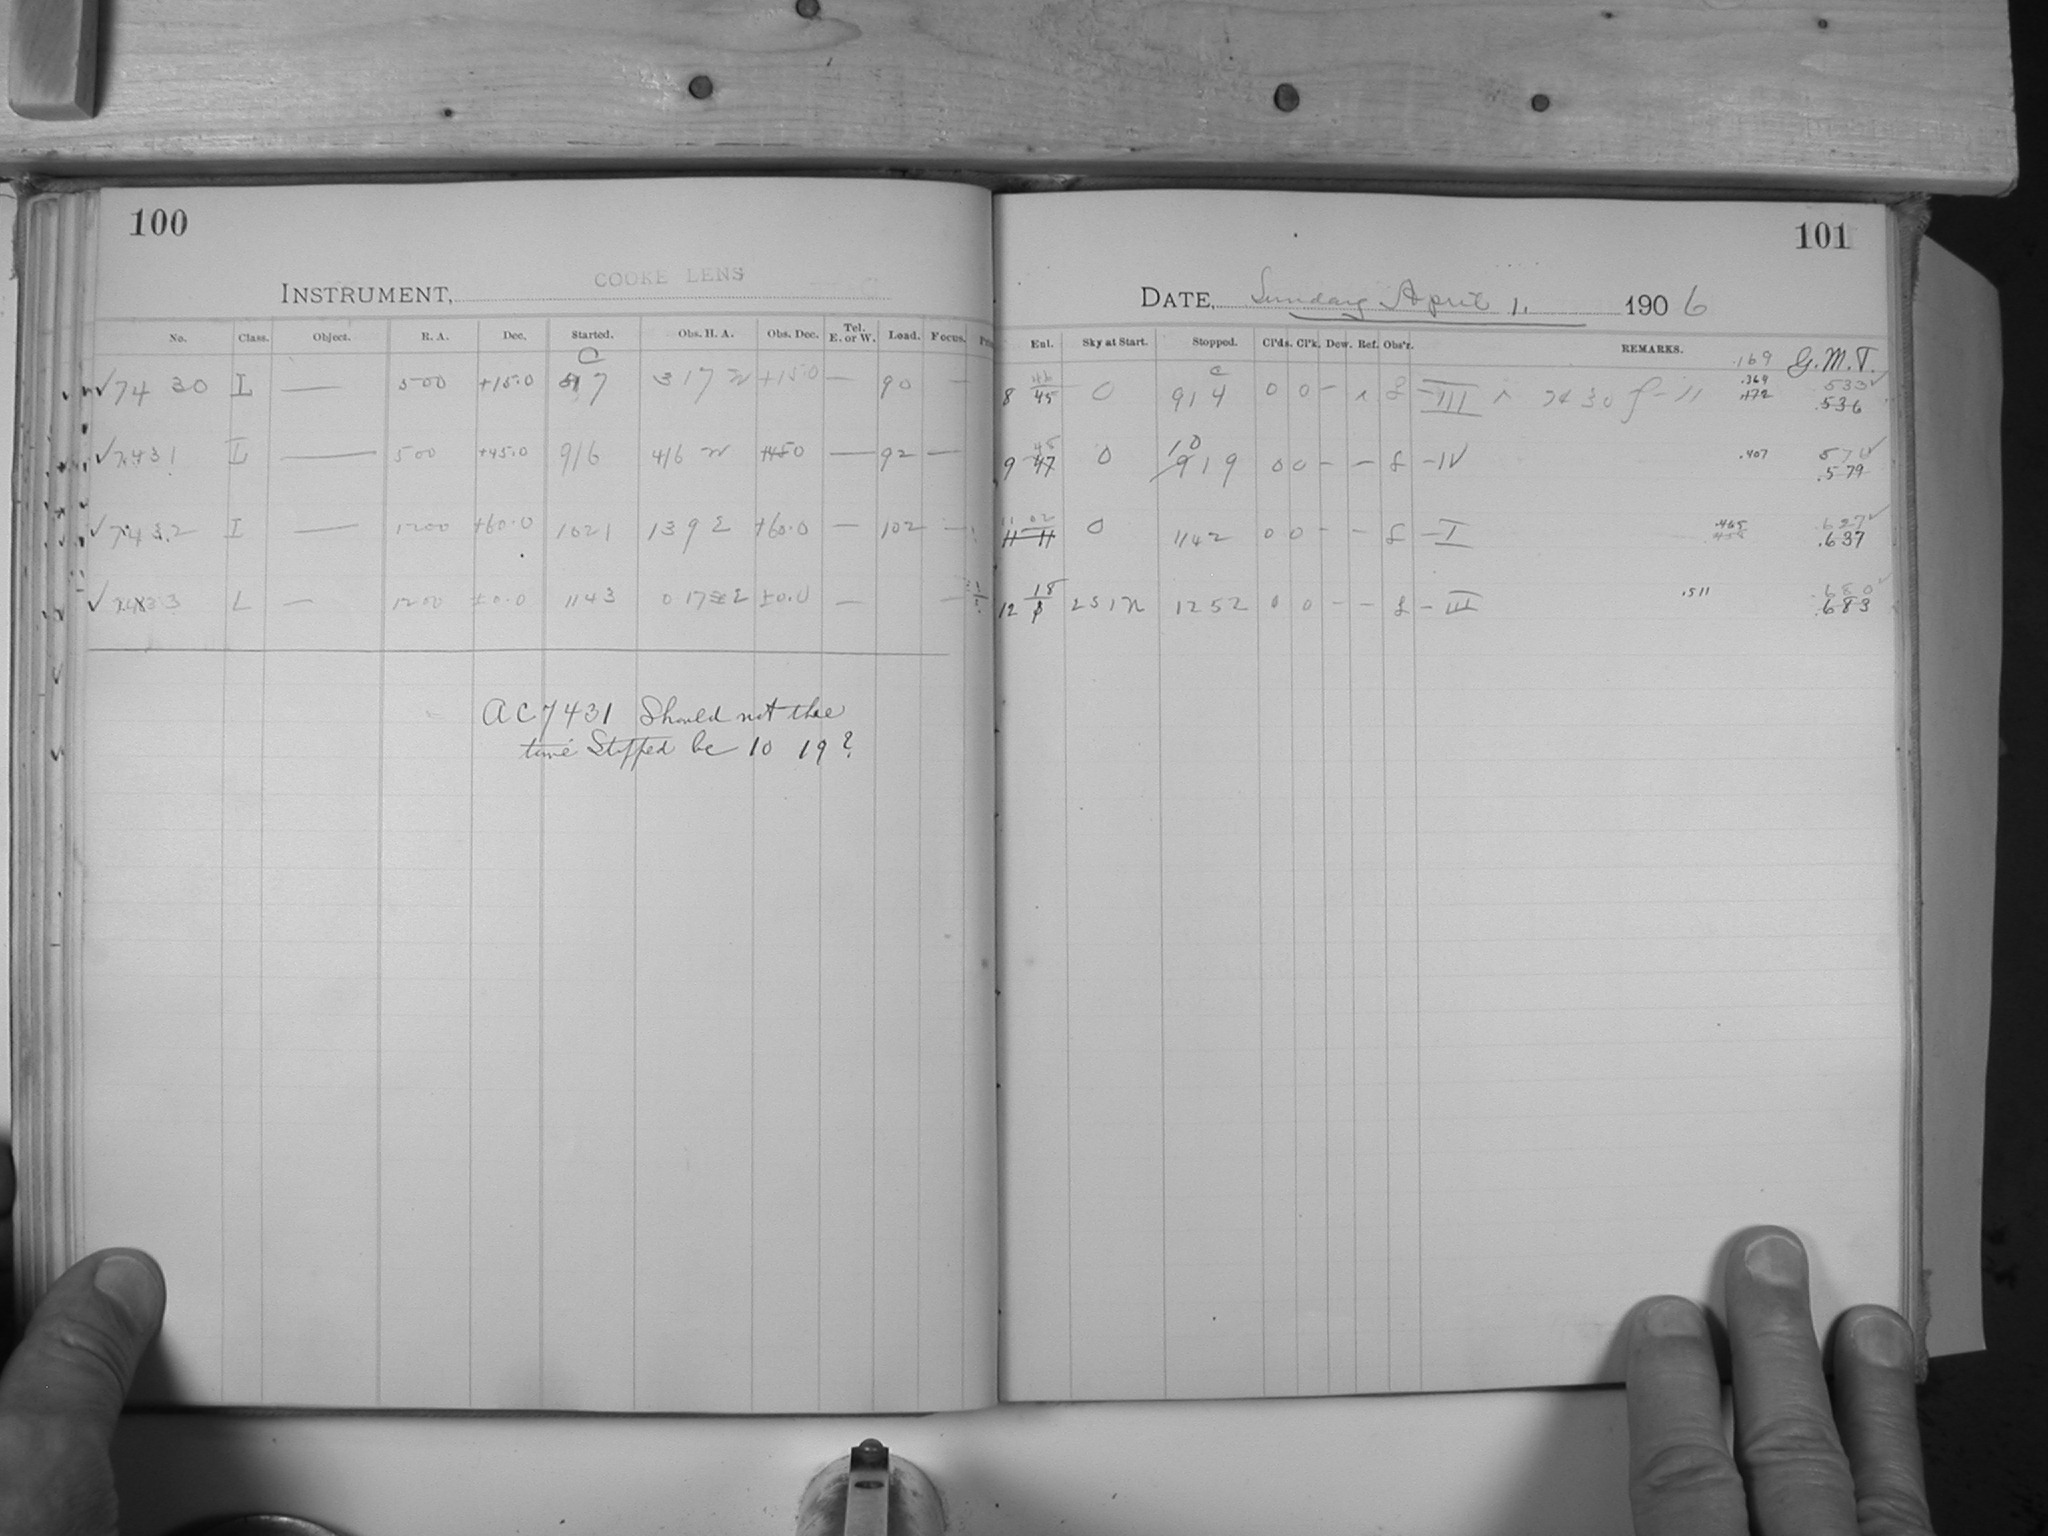 100
INSTRUMENT, COOKE LENS
No. Class. Object. R. A. Dec. Started. Obs. H. A. Obs. Dec. Tel. E. or W. Load. Focus.
✓7430 L — 500 +15.0 7 317 W +15.0 — 90 —
✓7431 L — 500 +45.0 916 416 W +45.0 — 92 —
✓7432 L — 1200 +60.0 1021 139 E +60.0 — 102 —
✓7433 L — 1200 ±0.0 1143 017 E ±0.0 — —
AC7431 Should not the
time Stopped be 10 19?
101
DATE, Sunday April 1. 1906
Eul. Sky at Start. Stopped. Cl'ds. Cl'k. Dew. Ref. Obs'r. REMARKS. .169 G.M.T.
8 45 0 914 0 0 – – III 7430 .369 .533✓
.172 .536
9 47 0 10 919 0 0 – – – IV .407 .570✓
.579
11 02 0 1142 0 0 – – – I .465 .627✓
11 11 .637
12 18 1252 0 0 – – – III .511 .680✓
.683